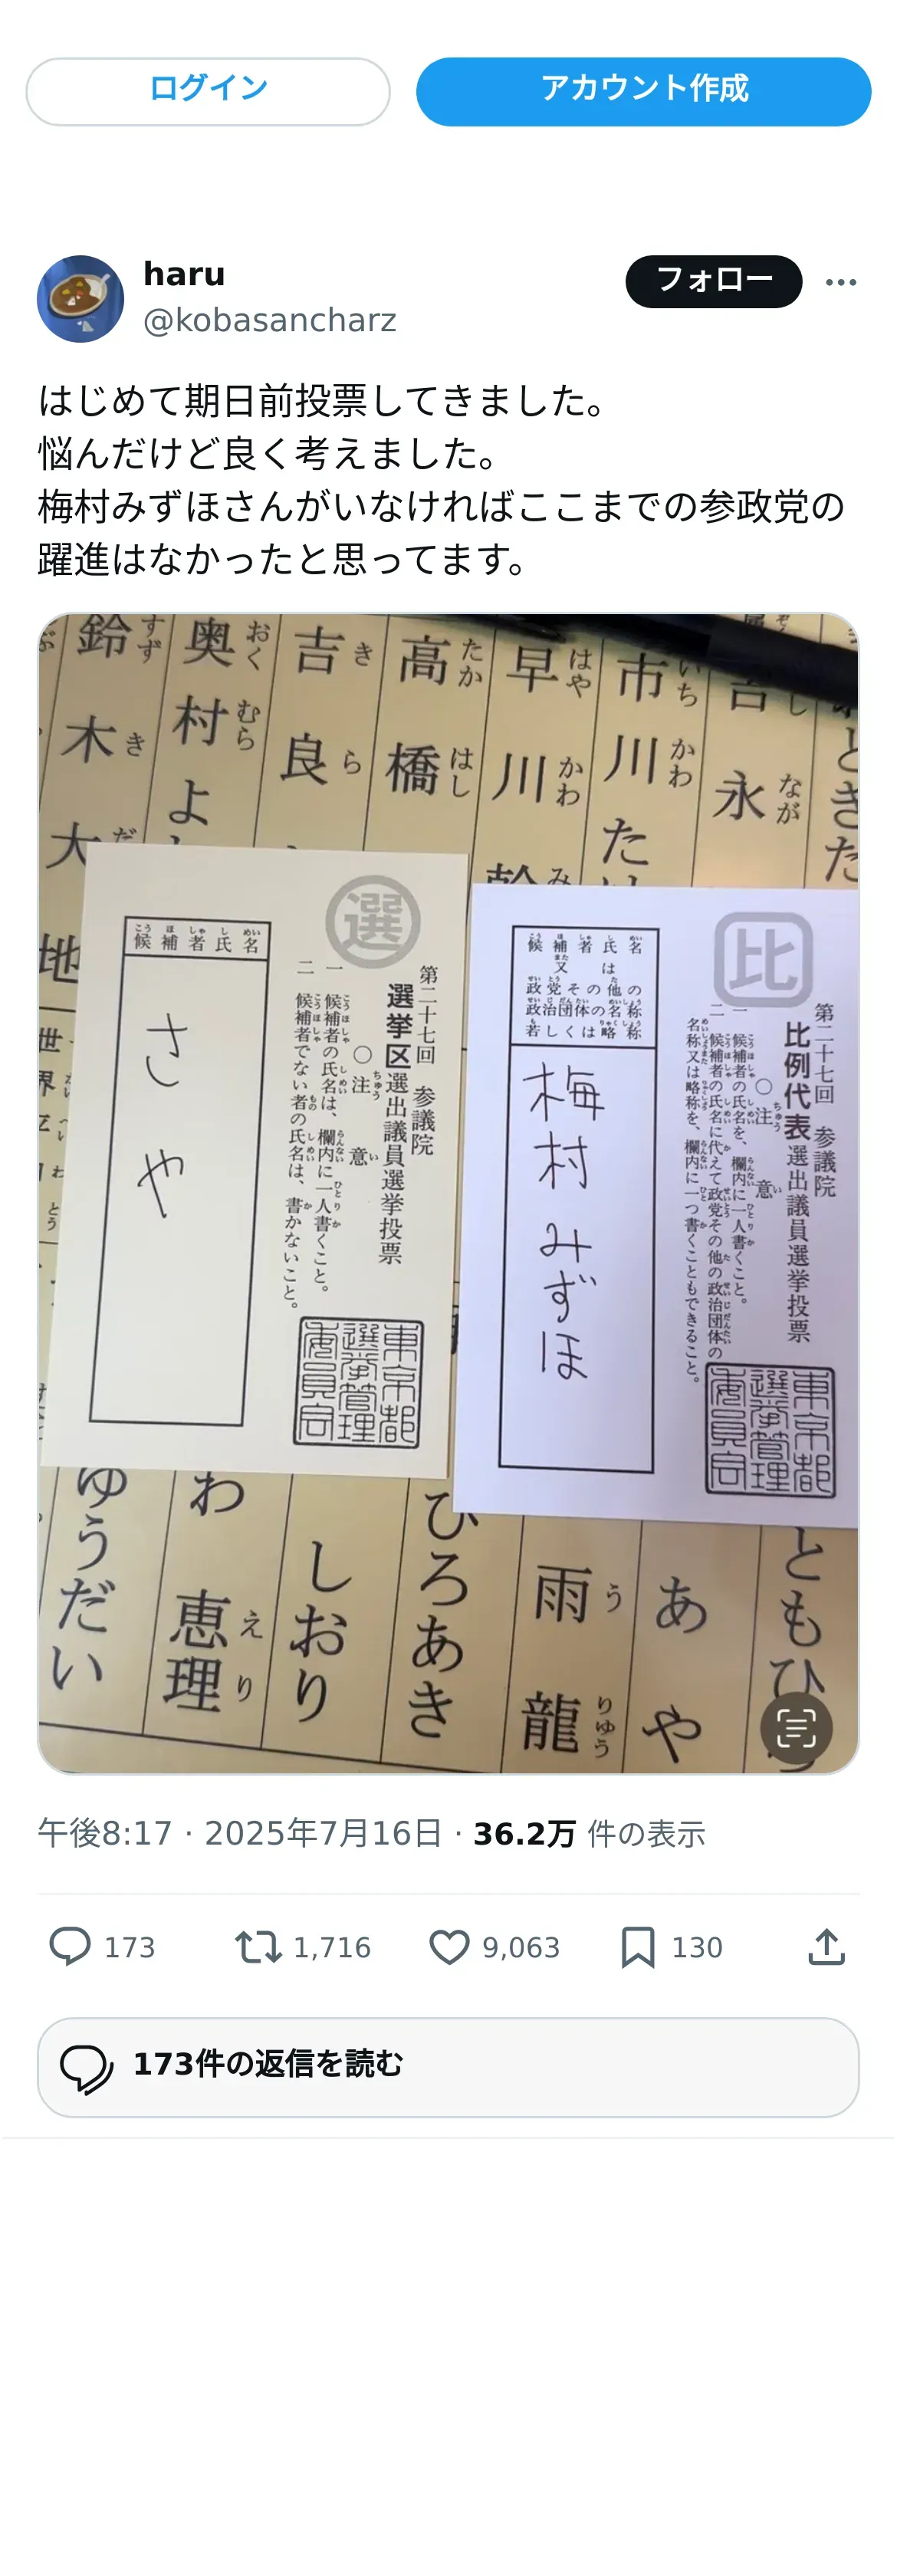 ログイン
アカウント作成
haru
フォロー
@kobasancharz
はじめて期日前投票してきました。
悩んだけど良く考えました。
梅村みずほさんがいなければここまでの参政党の
躍進はなかったと思ってます。
永 なが
市川 いちかわ た
早川 はやかわ 幹 み
高橋 たかはし
吉良 きら
奥村 おくむら よ
鈴木 すずき 大 だ
地
世
界
ともひ
あや
雨龍 うりゅう
ひろあき
しおり
わ 恵理 えり
ゆうだい
選
第二十七回 参議院
選挙区選出議員選挙投票
○注意 ちゅうい
一 候補者の氏名は、欄内に一人書くこと。
二 候補者でない者の氏名は、書かないこと。
候補者氏名 こうほしゃしめい
さや
東京都
選挙管理
委員会
比
第二十七回 参議院
比例代表選出議員選挙投票
○注意 ちゅうい
一 候補者の氏名を、欄内に一人書くこと。
二 候補者の氏名に代えて政党その他の政治団体の
名称又は略称を、欄内に一つ書くこともできること。
候補者氏名
又は
政党その他の
政治団体の名称
若しくは略称
梅村みずほ
東京都
選挙管理
委員会
午後8:17 · 2025年7月16日 · 36.2万 件の表示
173 1,716 9,063 130
173件の返信を読む